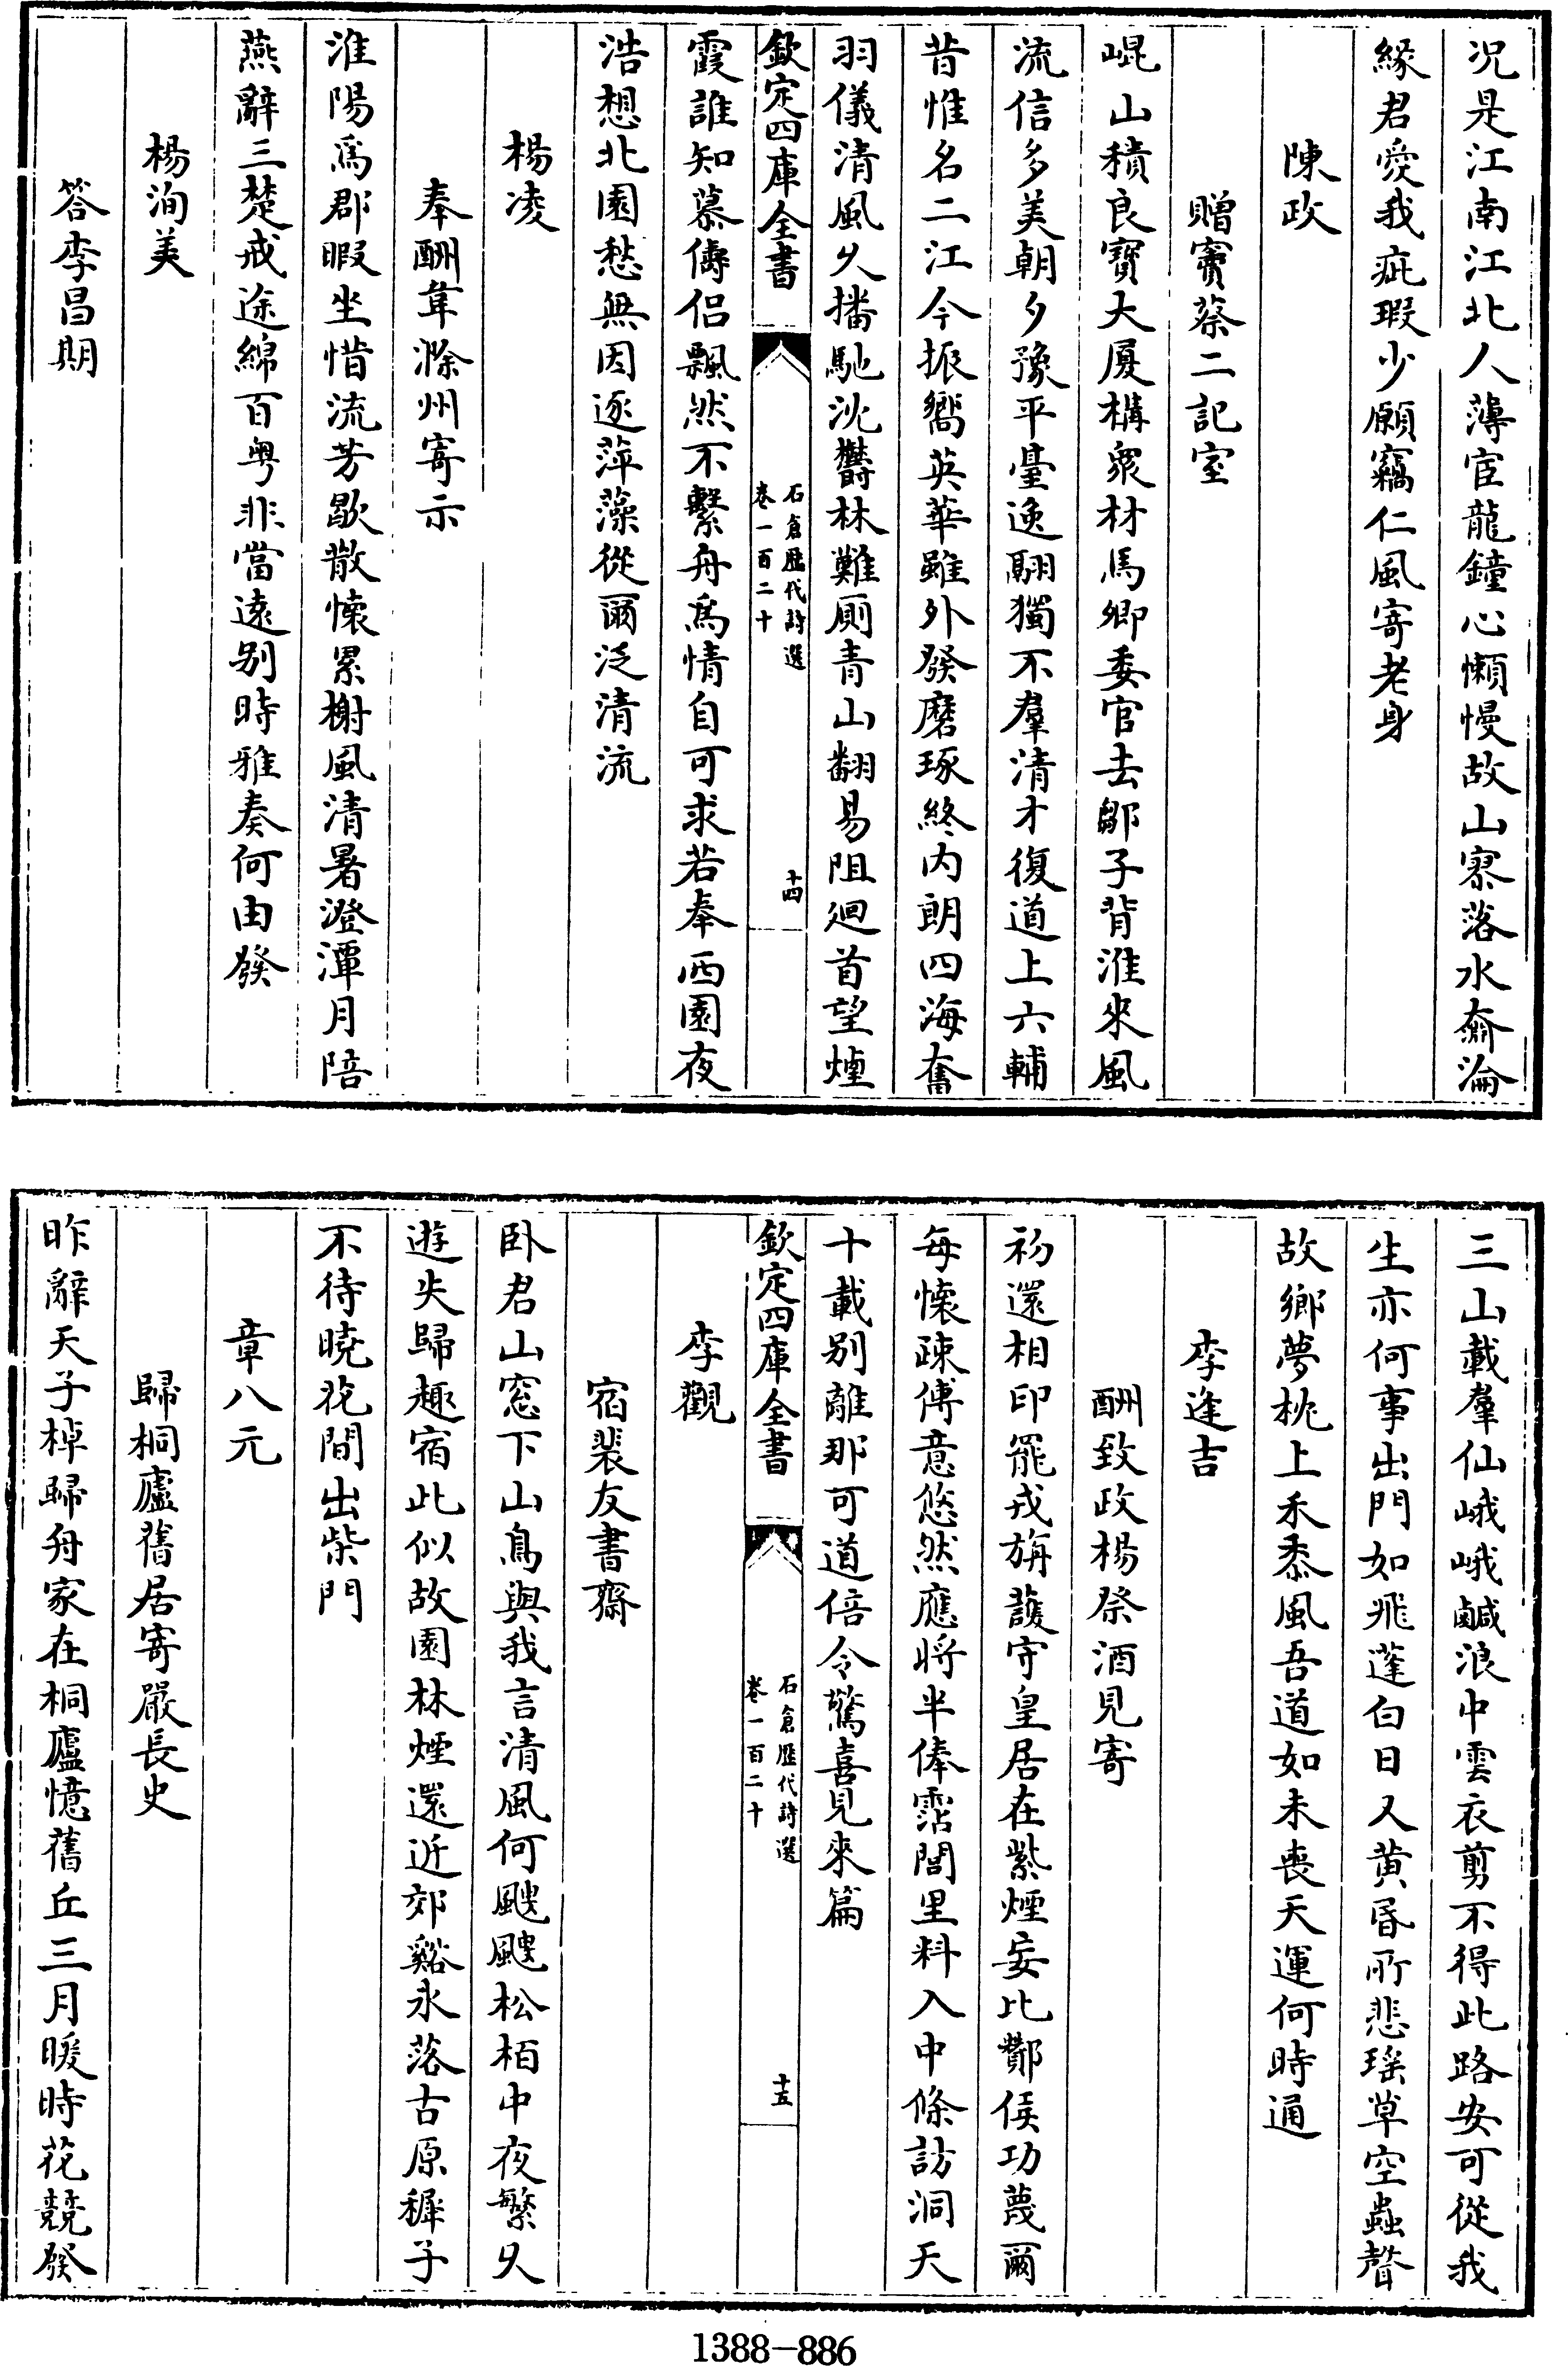 况是江南江北人薄宦龍鐘心懶慢故山寥落水奫淪
緣君愛我疵瑕少願竊仁風寄老身
陳政
贈竇蔡二記室
崐山積良寶大厦構衆材馬卿委官去鄒子背淮來風
流信多美朝夕豫平臺逸翮獨不羣清才復道上六輔
昔惟名二江今振嚮英華雖外發磨琢終内朗四海奮
羽儀清風久播馳沈鬱林難厠青山翻易阻迴首望煙
欽定四庫全書
石倉歷代詩選
卷一百二十
十四
霞誰知慕儔侣飄然不繫舟為情自可求若奉西園夜
浩想北園愁無因逐萍藻從爾泛清流
楊凌
奉酬韋滁州寄示
淮陽爲郡暇坐惜流芳歇散懷累榭風清暑澄潭月陪
燕辭三楚戒途綿百粤非當遠别時雅奏何由發
楊洵美
答李昌期
三山載羣仙峨峨鹹浪中雲衣剪不得此路安可從我
生亦何事出門如飛蓬白日又黄昏所悲瑶草空蟲聲
故鄉夢枕上禾黍風吾道如未喪天運何時通
李逢吉
酬致政楊祭酒見寄
初還相印罷戎旃䕶守皇居在紫煙妄比酇侯功蔑爾
每懷疎傅意悠然應將半俸霑閭里料入中條訪洞天
十載别離那可道倍令驚喜見來篇
欽定四庫全書
石倉歷代詩選
卷一百二十
十五
李觀
宿裴友書齋
卧君山窓下山鳥與我言清風何颼颼松栢中夜繁久
遊失歸趣宿此似故園林煙還近郊谿氷落古原穉子
不待曉花間出柴門
章八元
歸桐廬舊居寄嚴長史
昨辭天子棹歸舟家在桐廬憶舊丘三月暖時花競發
1388-886